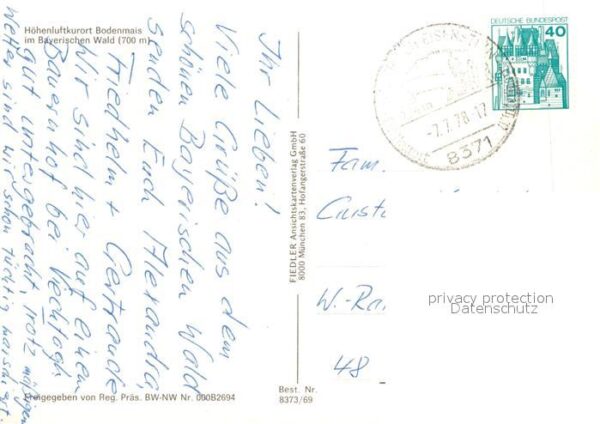 Höhenluftkurort Bodenmais
im Bayerischen Wald (700 m)
Ihr Lieben!
Viele Grüße aus dem
schönen Bayerischen Wald
senden Euch Alexandra,
Friedhelm + Gertraude
Wir sind hier auf einem
Bauernhof bei Viechtach
gut untergebracht, trotz mäßigem
Wetter sind wir schon tüchtig marschiert.
Freigegeben von Reg. Präs. BW-NW Nr. 000B2694
FIEDLER Ansichtskartenverlag GmbH
8000 München 83, Hofangerstraße 60
Best. Nr.
8373/69
DEUTSCHE BUNDESPOST
40
-7.7.78-17
8371
Fam.
W.-Ra
48
privacy protection
Datenschutz